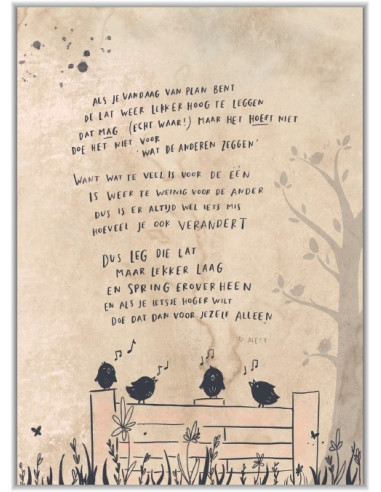 ALS JE VANDAAG VAN PLAN BENT
DE LAT WEER LEKKER HOOG TE LEGGEN
DAT MAG (ECHT WAAR!) MAAR HET HOEFT NIET
DOE HET NIET VOOR
'WAT DE ANDEREN ZEGGEN'
WANT WAT TE VEEL IS VOOR DE ÉÉN
IS WEER TE WEINIG VOOR DE ANDER
DUS IS ER ALTIJD WEL IETS MIS
HOEVEEL JE OOK VERANDERT
DUS LEG DIE LAT
MAAR LEKKER LAAG
EN SPRING EROVERHEEN
EN ALS JE IETSJE HOGER WILT
DOE DAT DAN VOOR JEZELF ALLEEN